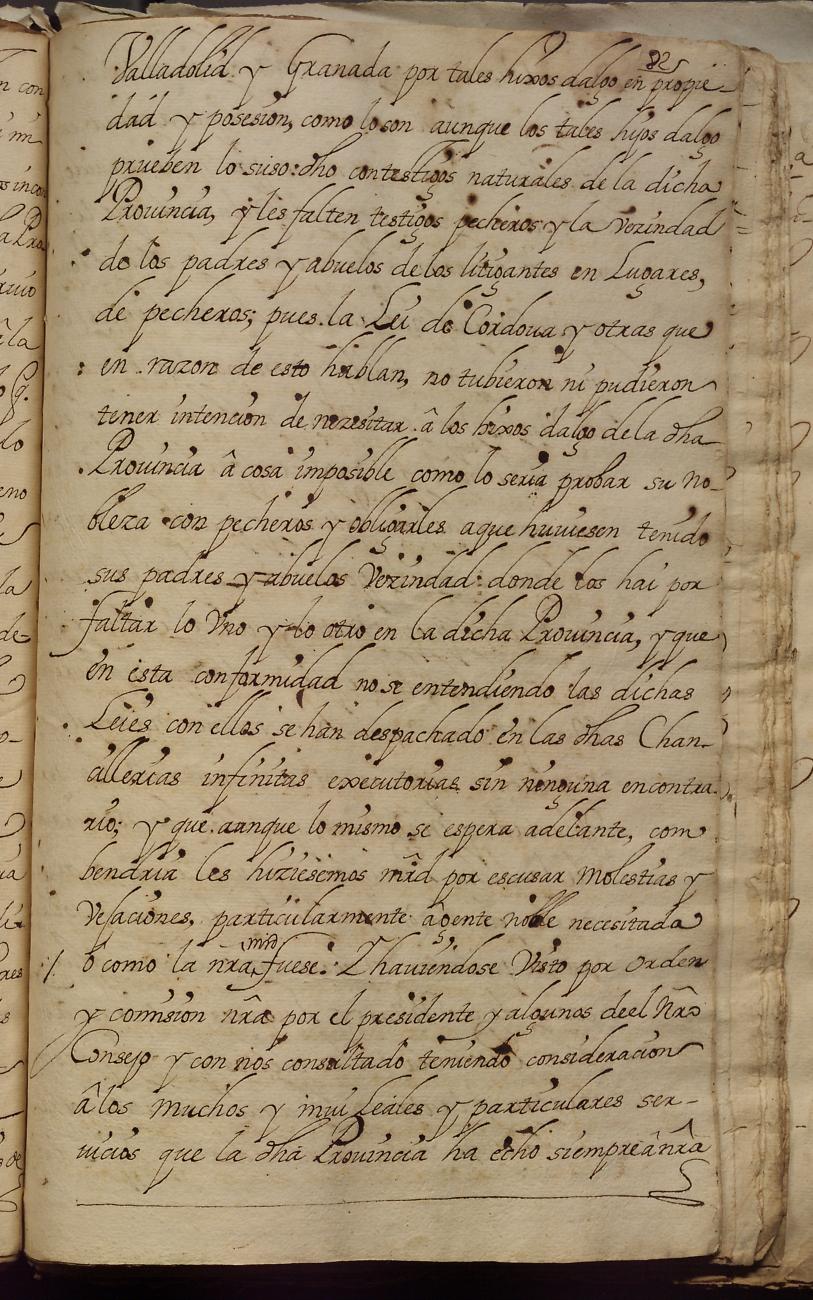 Valladolid y Granada por tales hixos dalgo en propie-
dad y posesion, como lo son aunque los tales hijos dalgo
prueben lo suso:dho con testigos naturales de la dicha
Prouincia, y les falten testigos pecheros y la Vezindad
de los padres y abuelos de los litigantes en Lugares,
de pecheros; pues la Lei de Cordoua y otras que
en razon de esto hablan, no tubieron ni pudieron
tener intencion de nezesitar â los hixos dalgo de la dha
Prouincia â cosa imposible como lo seria probar su no-
bleza con pecheros y obligarles a que huuiesen tenido
sus padres y abuelos Vezindad donde los hai por
faltar lo Vno y lo otro en la dicha Prouincia, y que
en esta conformidad no se entendiendo las dichas
Leies con ellos se han despachado en las dhas Chan-
cillerias infinitas executorias sin ninguna en contra-
rio; y que aunque lo mismo se espera adelante, com
bendria les hiziesemos mrd por escusar molestias y
Vesaciones, particularmente â gente noble necesitada
o como la nra mrd fuese. Y hauiendose Visto por orden
y comision nra por el presidente y algunos de el Nro
Consejo y con nos consultado teniendo consideracion
â los muchos y mui Leales y particulares ser-
uicios que la dha Prouincia ha echo siempre â nra